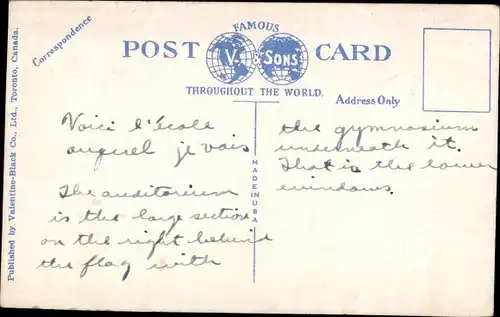 FAMOUS
POST CARD
V. & SONS
THROUGHOUT THE WORLD.
Correspondence
Address Only
Published by Valentine-Black Co., Ltd., Toronto, Canada.
MADE IN USA
Voici l'école
auquel je vais
The auditorium
is the large section
on the right behind
the flag with
the gymnasium
underneath it.
That is the lower
windows.